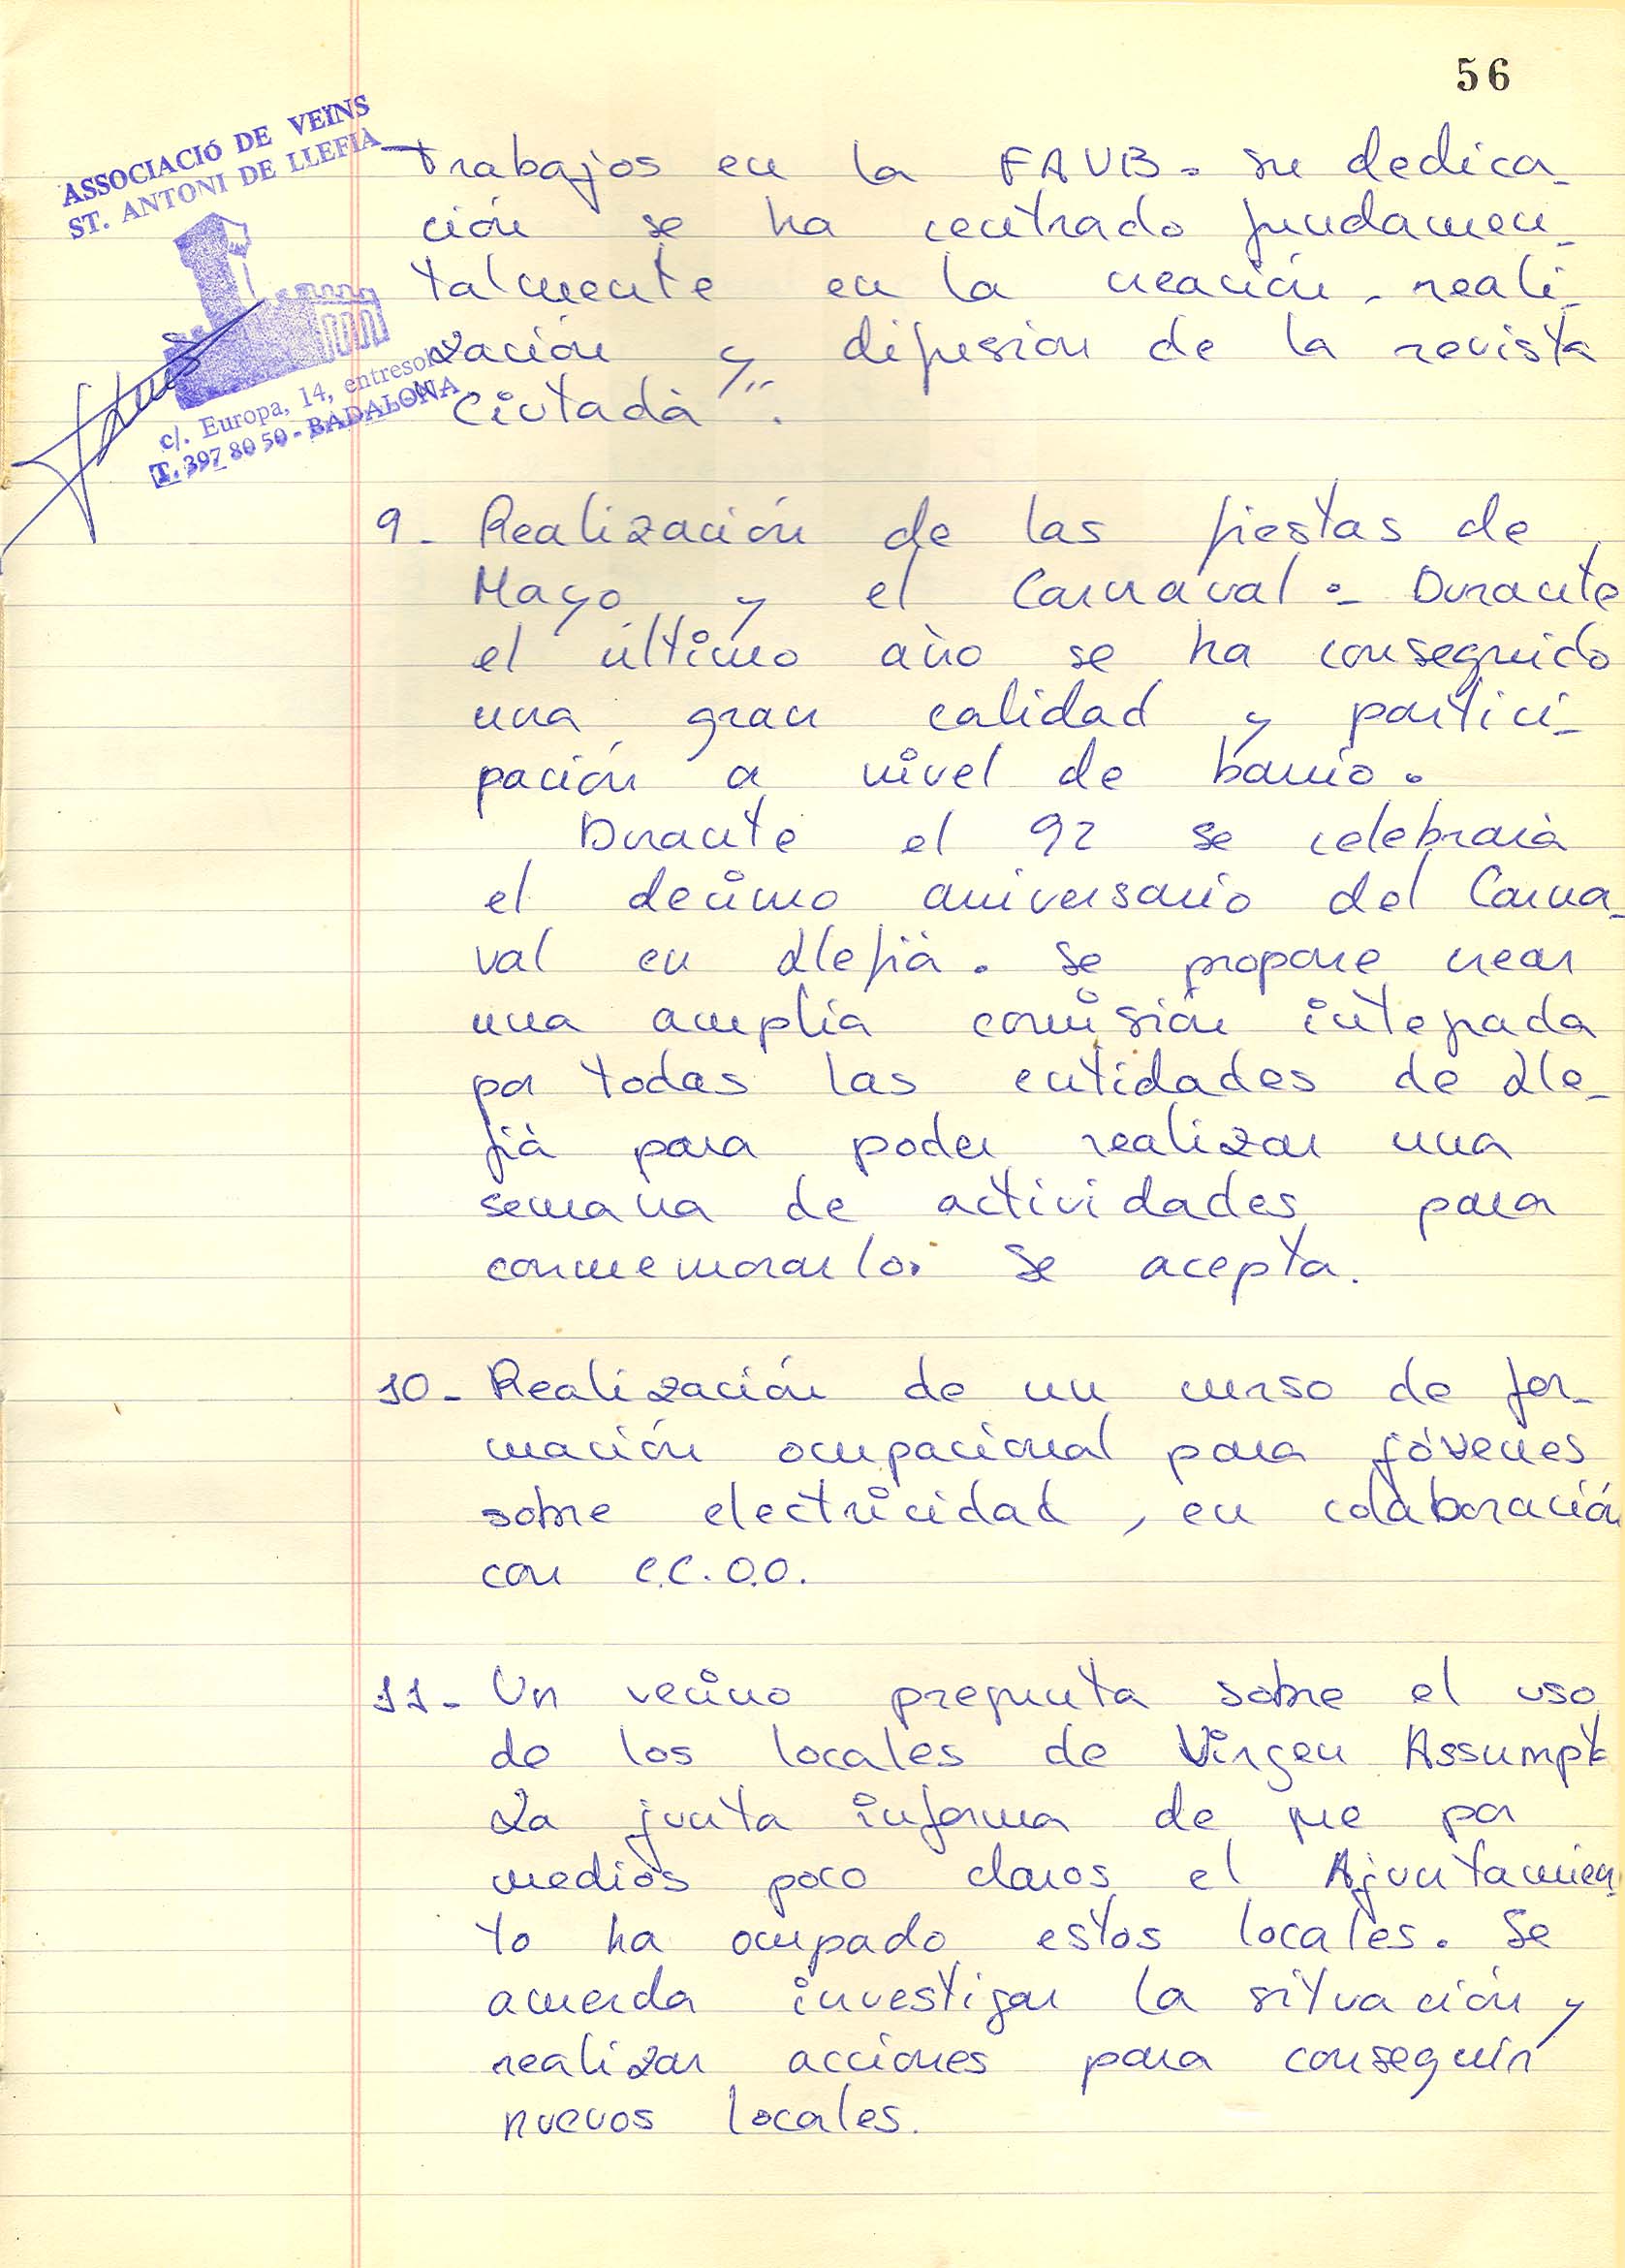 56
ASSOCIACIÓ DE VEÏNS
ST. ANTONI DE LLEFIÀ
c/. Europa, 14, entresol
T. 397 80 50 - BADALONA
trabajos en la FAVB. su dedica_
ción se ha centrado fundamen_
talmente en la creación, reali_
zación y difusión de la revista
"Ciutadà".
9_ Realización de las fiestas de
Mayo y el Carnaval:_ Durante
el último año se ha conseguido
una gran calidad y partici_
pación a nivel de barrio.
Durante el 92 se celebrará
el decimo aniversario del Carna_
val en Llefià. Se propone crear
una amplia comisión integrada
por todas las entidades de Lle_
fià para poder realizar una
semana de actividades para
conmemorarlo. Se acepta.
10_ Realización de un curso de for_
mación ocupacional para jóvenes
sobre electricidad, en colaboración
con C.C.O.O.
11_ Un vecino pregunta sobre el uso
de los locales de Virgen Assumpt
La junta informa de que por
medios poco claros el Ajuntamien_
to ha ocupado estos locales. Se
acuerda investigar la situación y
realizar acciones para conseguir
nuevos locales.